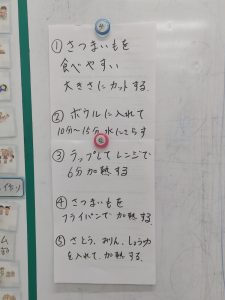 ① さつまいもを
食べやすい
大きさにカットする.
② ボウルに入れて
10分~15分 水にさらす
③ ラップして レンジで
6分 加熱する
④ さつまいもを
フライパンで 加熱する.
⑤ さとう、みりん、しょうゆ
を入れて、加熱する.
イケン
ム